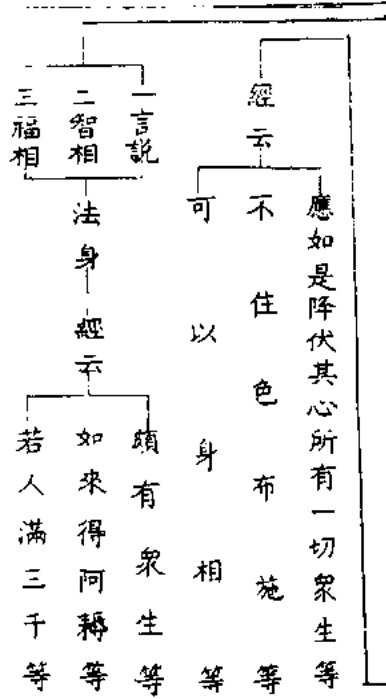 經云
應如是降伏其心所有一切衆生等
不住色布施等
可以身相等
一言説
二智相
三福相
法身
經云
頗有衆生等
如來得阿耨等
若人滿三千等